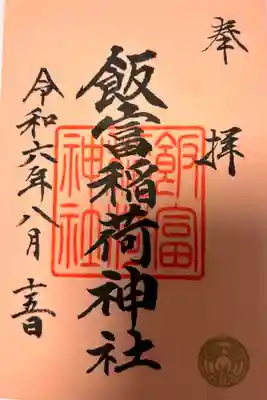 奉拝
飯富稲荷神社
飯富
稲荷
神社
令和六年八月
十五日